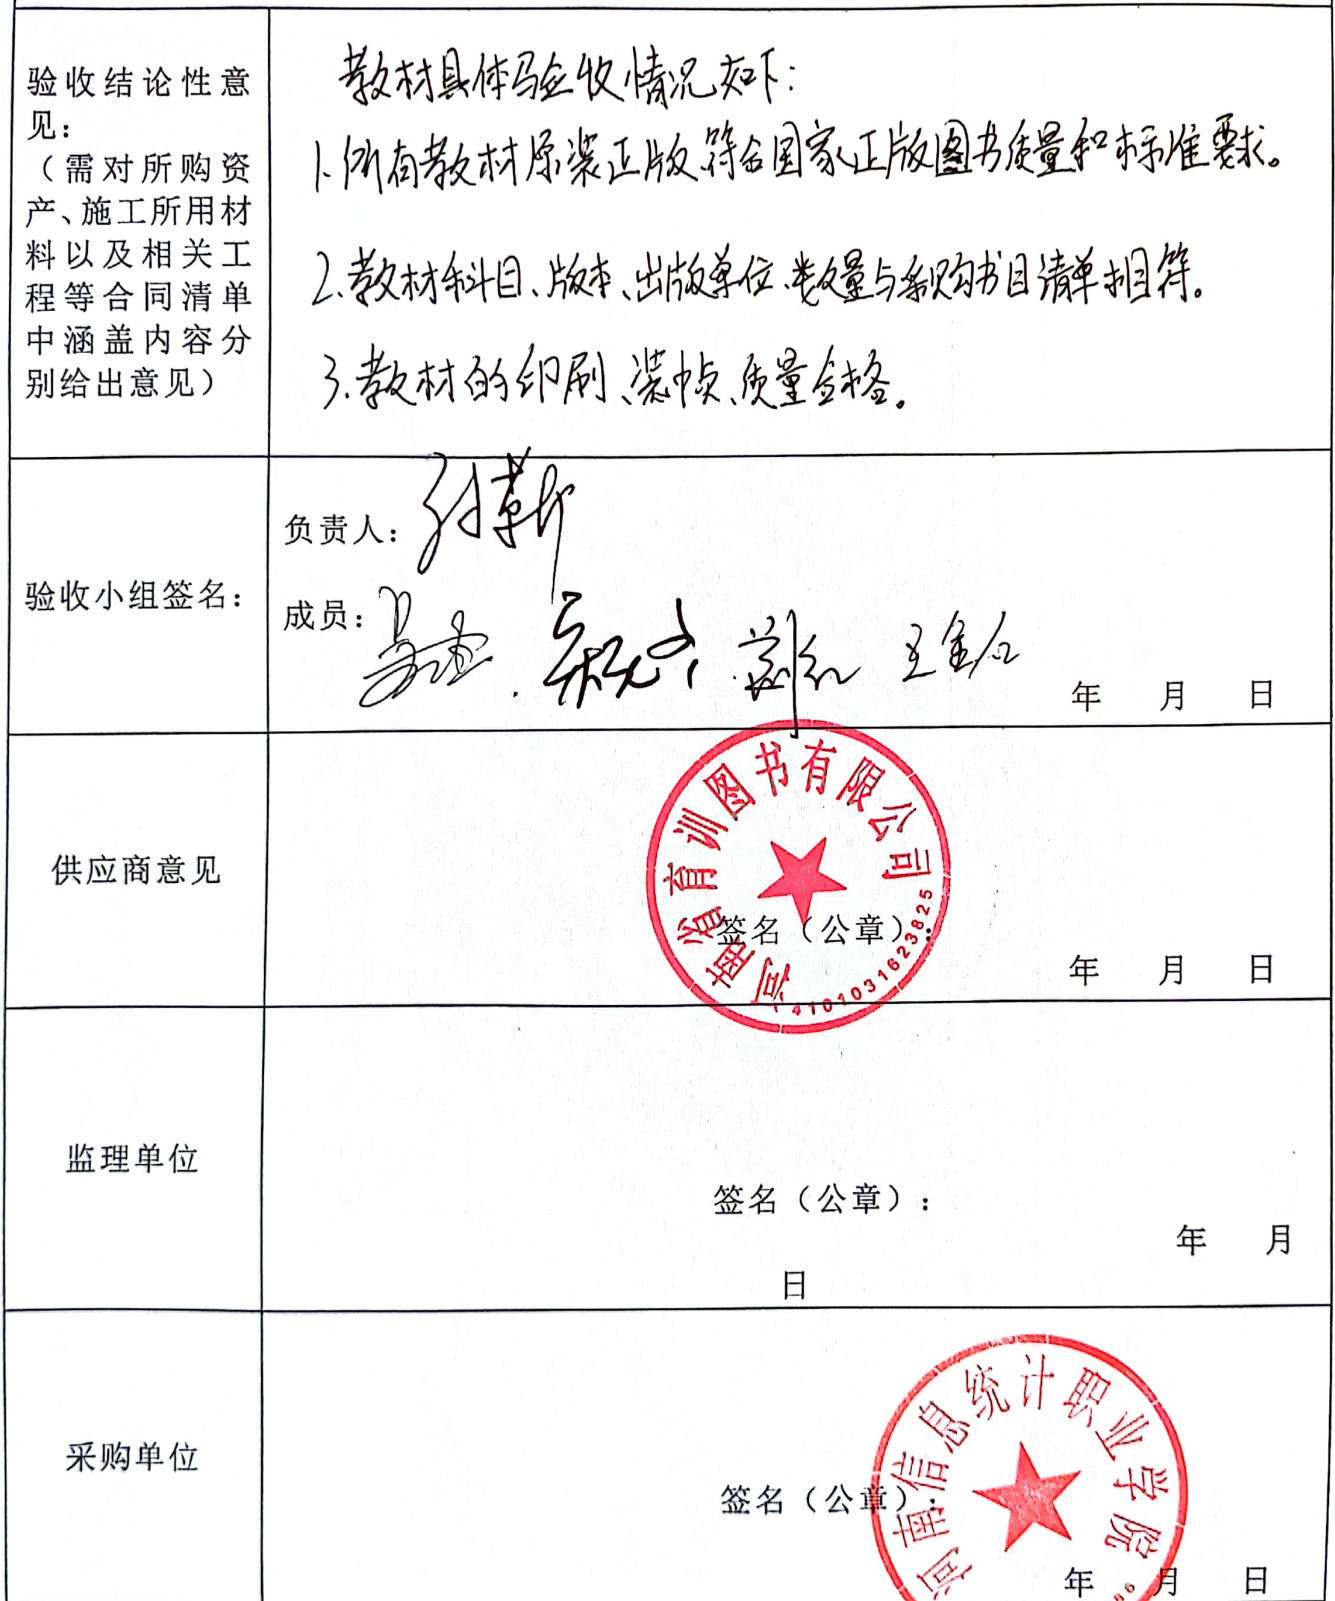 验收结论性意
见：
（需对所购资
产、施工所用材
料以及相关工
程等合同清单
中涵盖内容分
别给出意见）
教材具体验收情况如下：
1.所有教材原装正版、符合国家正版图书质量和标准要求。
2.教材科目、版本、出版单位、数量与采购书目清单相符。
3.教材的印刷、装帧、质量合格。
验收小组签名：
负责人：
成员：
年 月 日
供应商意见
河南省育训图书有限公司
签名（公章）：
4101031623825
年 月 日
监理单位
签名（公章）：
年 月
日
采购单位
河南信息统计职业学院
签名（公章）：
年 月 日